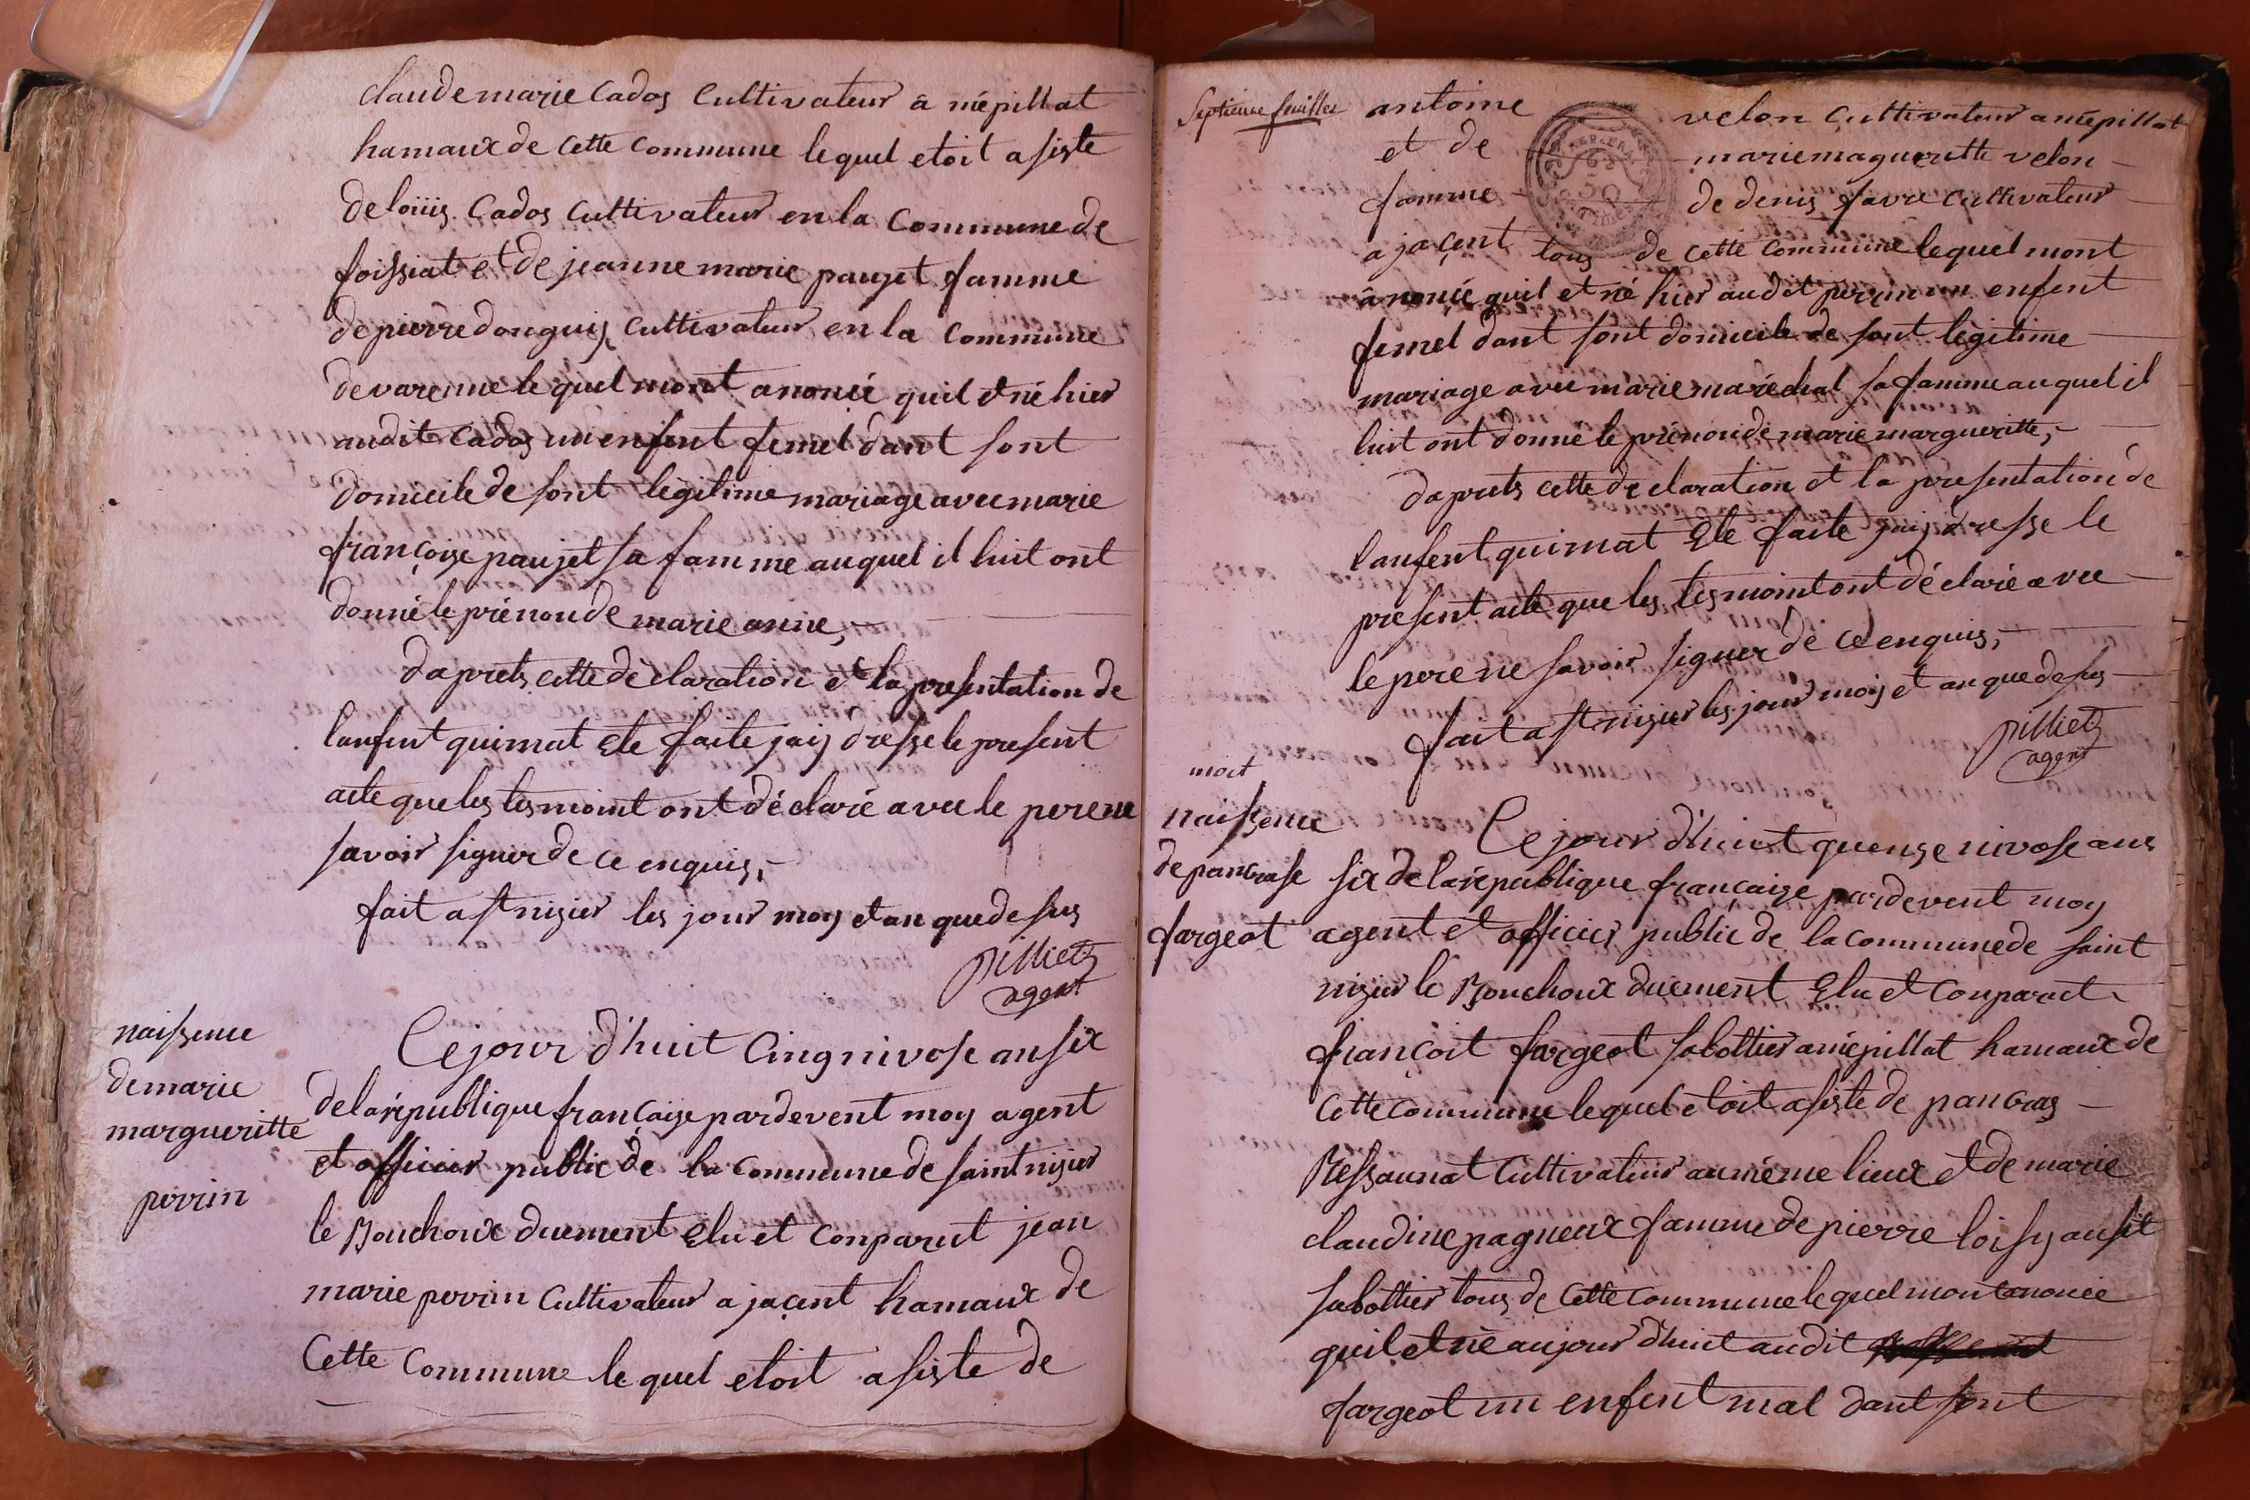 claudemarie Cados Cultivateur â mépillat
hamaux de cette commune lequel etoit asiste
de loüis Cados Cultivateur en la Commune de
foissiat et de jeanne marie paujet famme
de pierre donguis Cultivateur en la commune
de varenne lequel mont anoncé quil et né hier
audit Cados un enfent femel dant sont
domicile de sont legitime mariage avec marie
françoise paujet sa famme auquel il luit ont
donné le prénon de marie anne,
daprets cette déclaration et la presentation de
lanfent qui mat Ete faite jaij dresse le present
acte que les tesmoint ont déclaré avec le pere ne
savoir signer de ce enquis,
fait a st nisier les jour mois et an que desus
pilliet
agent
naissence
de marie
margueritte
perrin
Ce jour d'huit Cinq nivose an six
de la république française pardevent moy agent
et officier public de la commune de saint nisier
le Bouchoux duement Elu et Conparut jean
marie perrin Cultivateur a jaçent hamaux de
Cette Commune lequel etoit asiste de
Septieme feuillet
antoine velon Cultivateur a mépillat
et de mariemaguerette velon
famme de denis favre Cultivateur
a jaçent tous de cette commune lequel mont
ânoncé quil et né hier audit perrin un enfent
femel dant sont domicile de sont legitime
mariage avec marie maréchal sa famme auquel il
luit ont donné le prénon de marie margueritte,
daprets cette declaration et la presentation de
lanfent qui mat Ete faite jaij dresse le
present acte que les tesmoint ont déclaré avec
le pere ne savoir signer de ce enquis,
fait a st nisier les jour mois et an que desus
pilliet
agent
mort
naissence
de pancrase
fargeot
Ce jour d'huit quense nivose ans
six de la république française pardevent moy
agent et officier public de la commune de saint
nisier le Bouchoux duement Elu et Conparut
françoit fargeot sabottier a mépillat hamaux de
Cette Commune lequel etoit asiste de pancras
Ressaunat Cultivateur au méme lieux et de marie
claudine pagneux famme de pierre loisy ausit
sabottier tous de Cette Commune lequel mont anoncée
quil et né aujour d'huit audit
fargeot un enfent mal dant sont